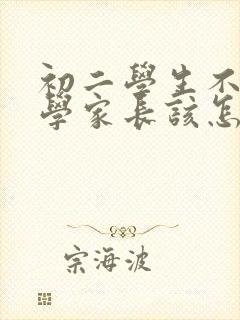 初二學生不
學家長該怎
宗海波